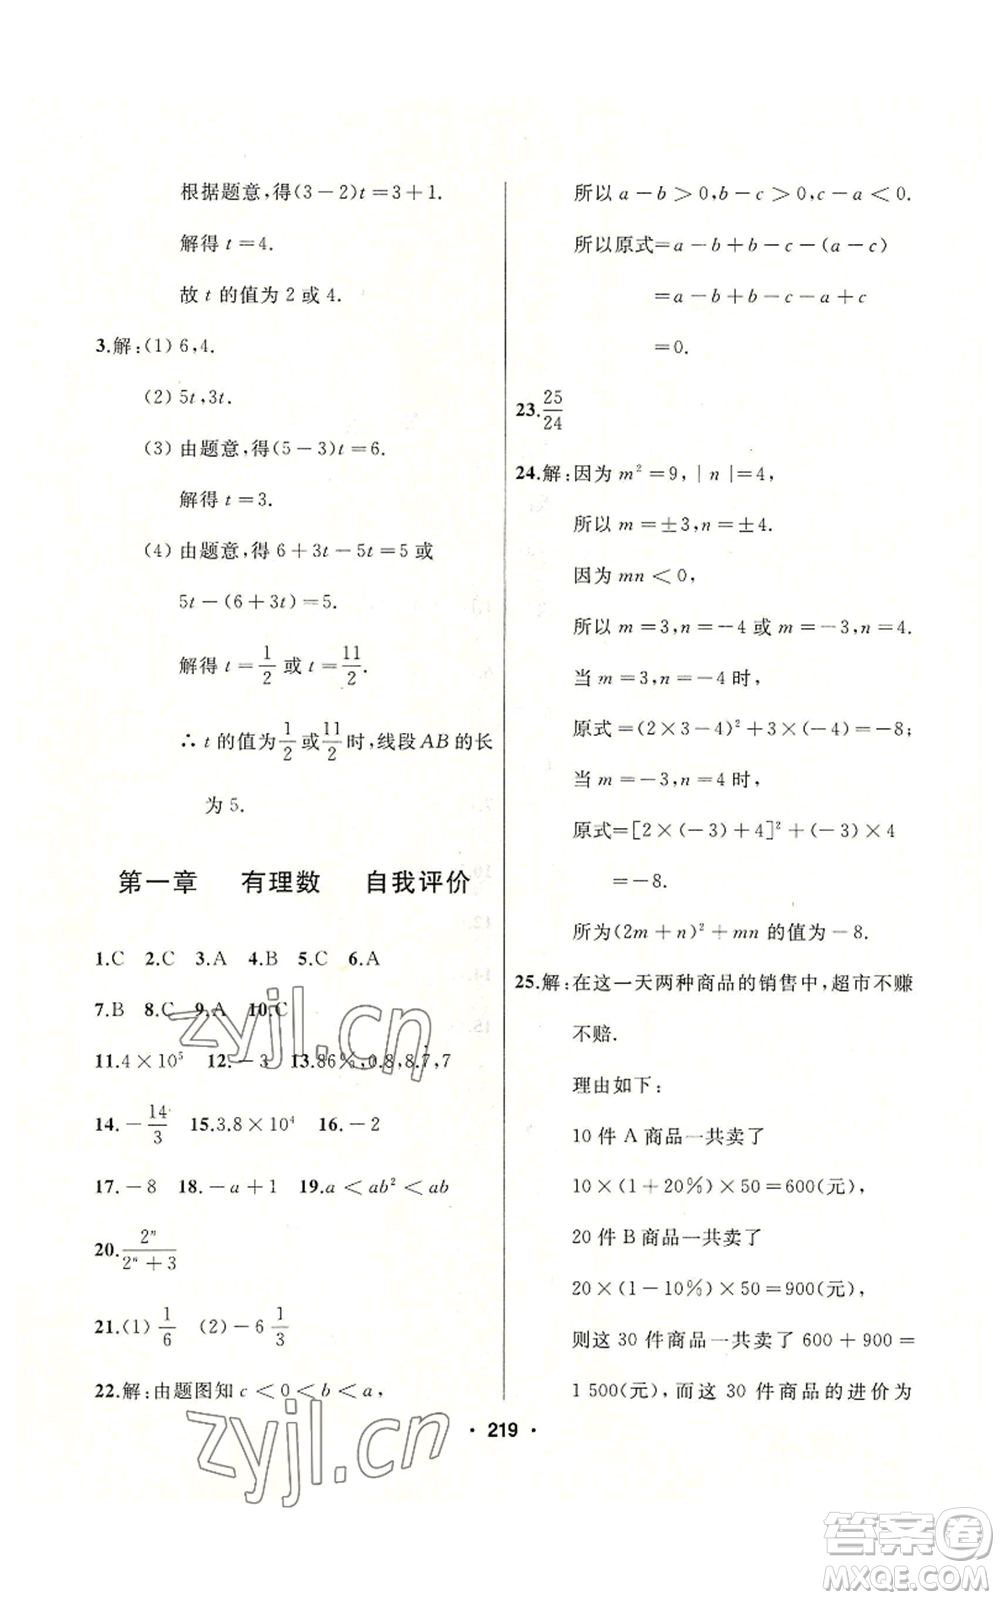 根据题意,得(3-2)t=3+1.
解得 t=4.
故 t 的值为 2 或 4.
3.解:(1) 6,4.
(2) 5t,3t.
(3) 由题意,得(5-3)t=6.
解得 t=3.
(4) 由题意,得 6+3t-5t=5 或
5t-(6+3t)=5.
解得 t=1/2 或 t=11/2.
∴ t 的值为1/2或11/2时,线段 AB 的长
为 5.
第一章 有理数 自我评价
1.C 2.C 3.A 4.B 5.C 6.A
7.B 8.C 9.A 10.C
11.4×10⁵ 12.-3 13.86%,0.8,8.7,7
14.-14/3 15.3.8×10⁴ 16.-2
17.-8 18.-a+1 19.a<ab²<ab
20.2ⁿ/(2ⁿ+3)
21.(1) 1/6 (2)-6 1/3
22.解:由题图知 c<0<b<a,
所以 a-b>0,b-c>0,c-a<0.
所以原式=a-b+b-c-(a-c)
=a-b+b-c-a+c
=0.
23.25/24
24.解:因为 m²=9,|n|=4,
所以 m=±3,n=±4.
因为 mn<0,
所以 m=3,n=-4 或 m=-3,n=4.
当 m=3,n=-4 时,
原式=(2×3-4)²+3×(-4)=-8;
当 m=-3,n=4 时,
原式=[2×(-3)+4]²+(-3)×4
=-8.
所为(2m+n)²+mn 的值为-8.
25.解:在这一天两种商品的销售中,超市不赚
不赔.
理由如下:
10 件 A 商品一共卖了
10×(1+20%)×50=600(元),
20 件 B 商品一共卖了
20×(1-10%)×50=900(元),
则这 30 件商品一共卖了 600+900=
1 500(元),而这 30 件商品的进价为
· 219 ·
zyjl.cn
zyjl.cn
答案圈
MXQE.COM